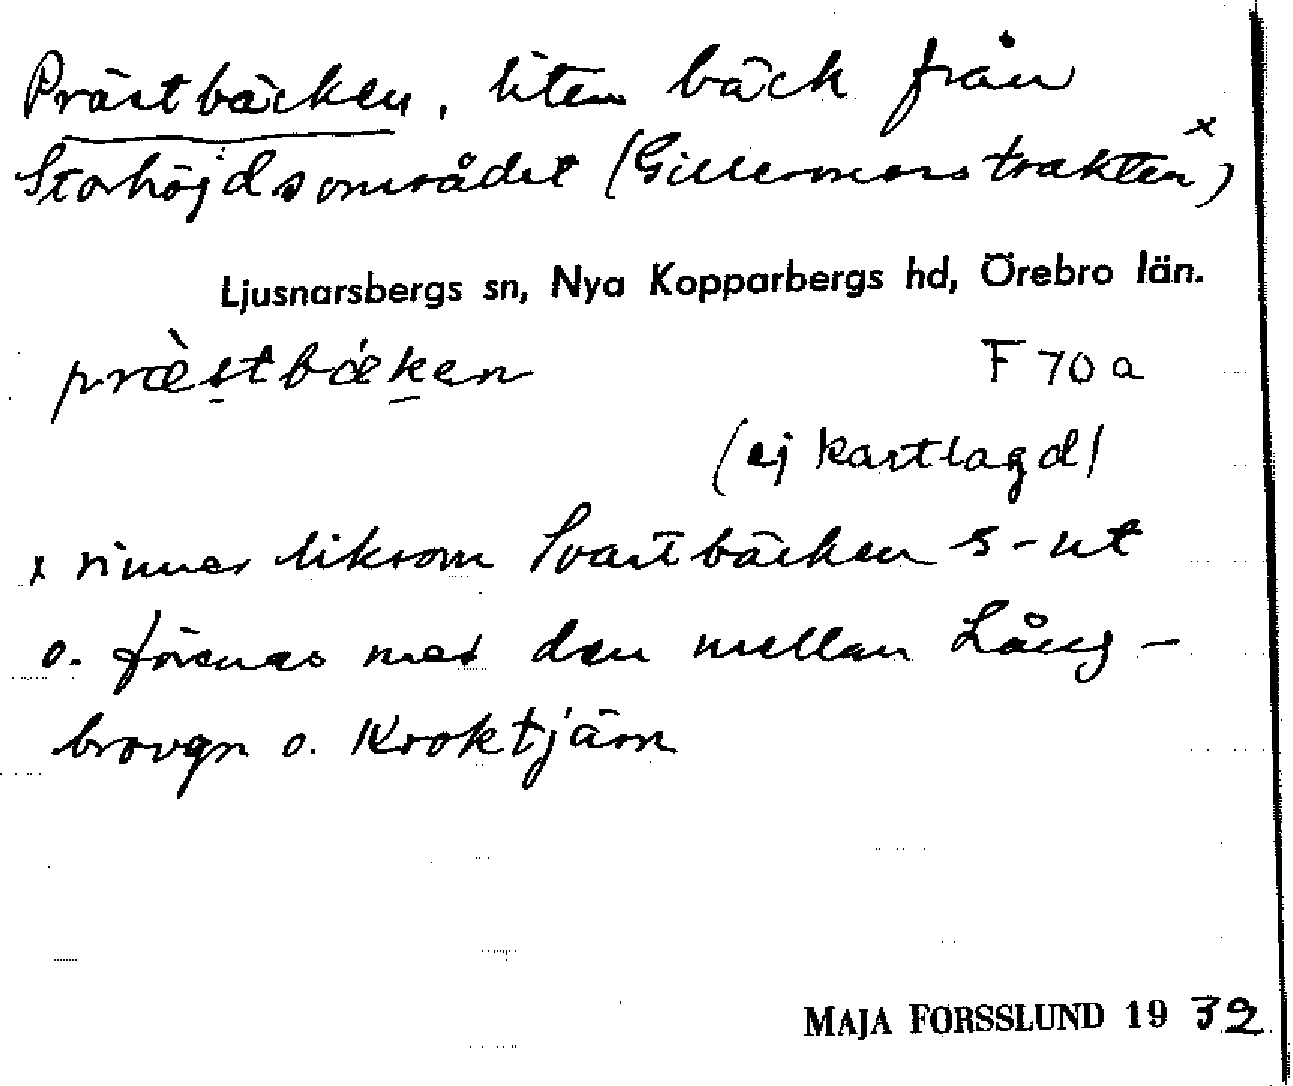 Prästbäcken, liten bäck från
Storhöjdsområdet (Gillermarstrakten x)
Ljusnarsbergs sn, Nya Kopparbergs hd, Örebro län.
præ̀stbǽken
F 70 a
(ej kartlagd)
x rinner liksom Svartbäcken s-ut
o. förenas med den mellan Lång-
brovgn o. Kroktjärn
MAJA FORSSLUND 19 32